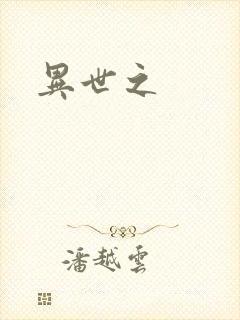 異世之
潘越雲